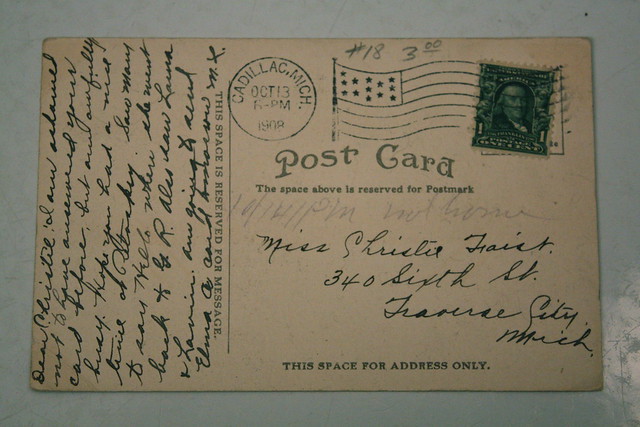 #18 3.00
CADILLAC, MICH.
OCT 13
6-PM
1908
1 1
Post Card
The space above is reserved for Postmark
THIS SPACE IS RESERVED FOR MESSAGE.
Dear Christie: I am ashamed
not to have answered your
card before, but am awfully
busy. Hope you had a nice
time at Petoskey. Saw Mary
to say Hello when she went
back to G. R. Also saw Laura
& am going to send
Elma a card tomorrow
not home
Miss Christie Faist.
340 Sixth St.
Traverse City,
Mich.
THIS SPACE FOR ADDRESS ONLY.